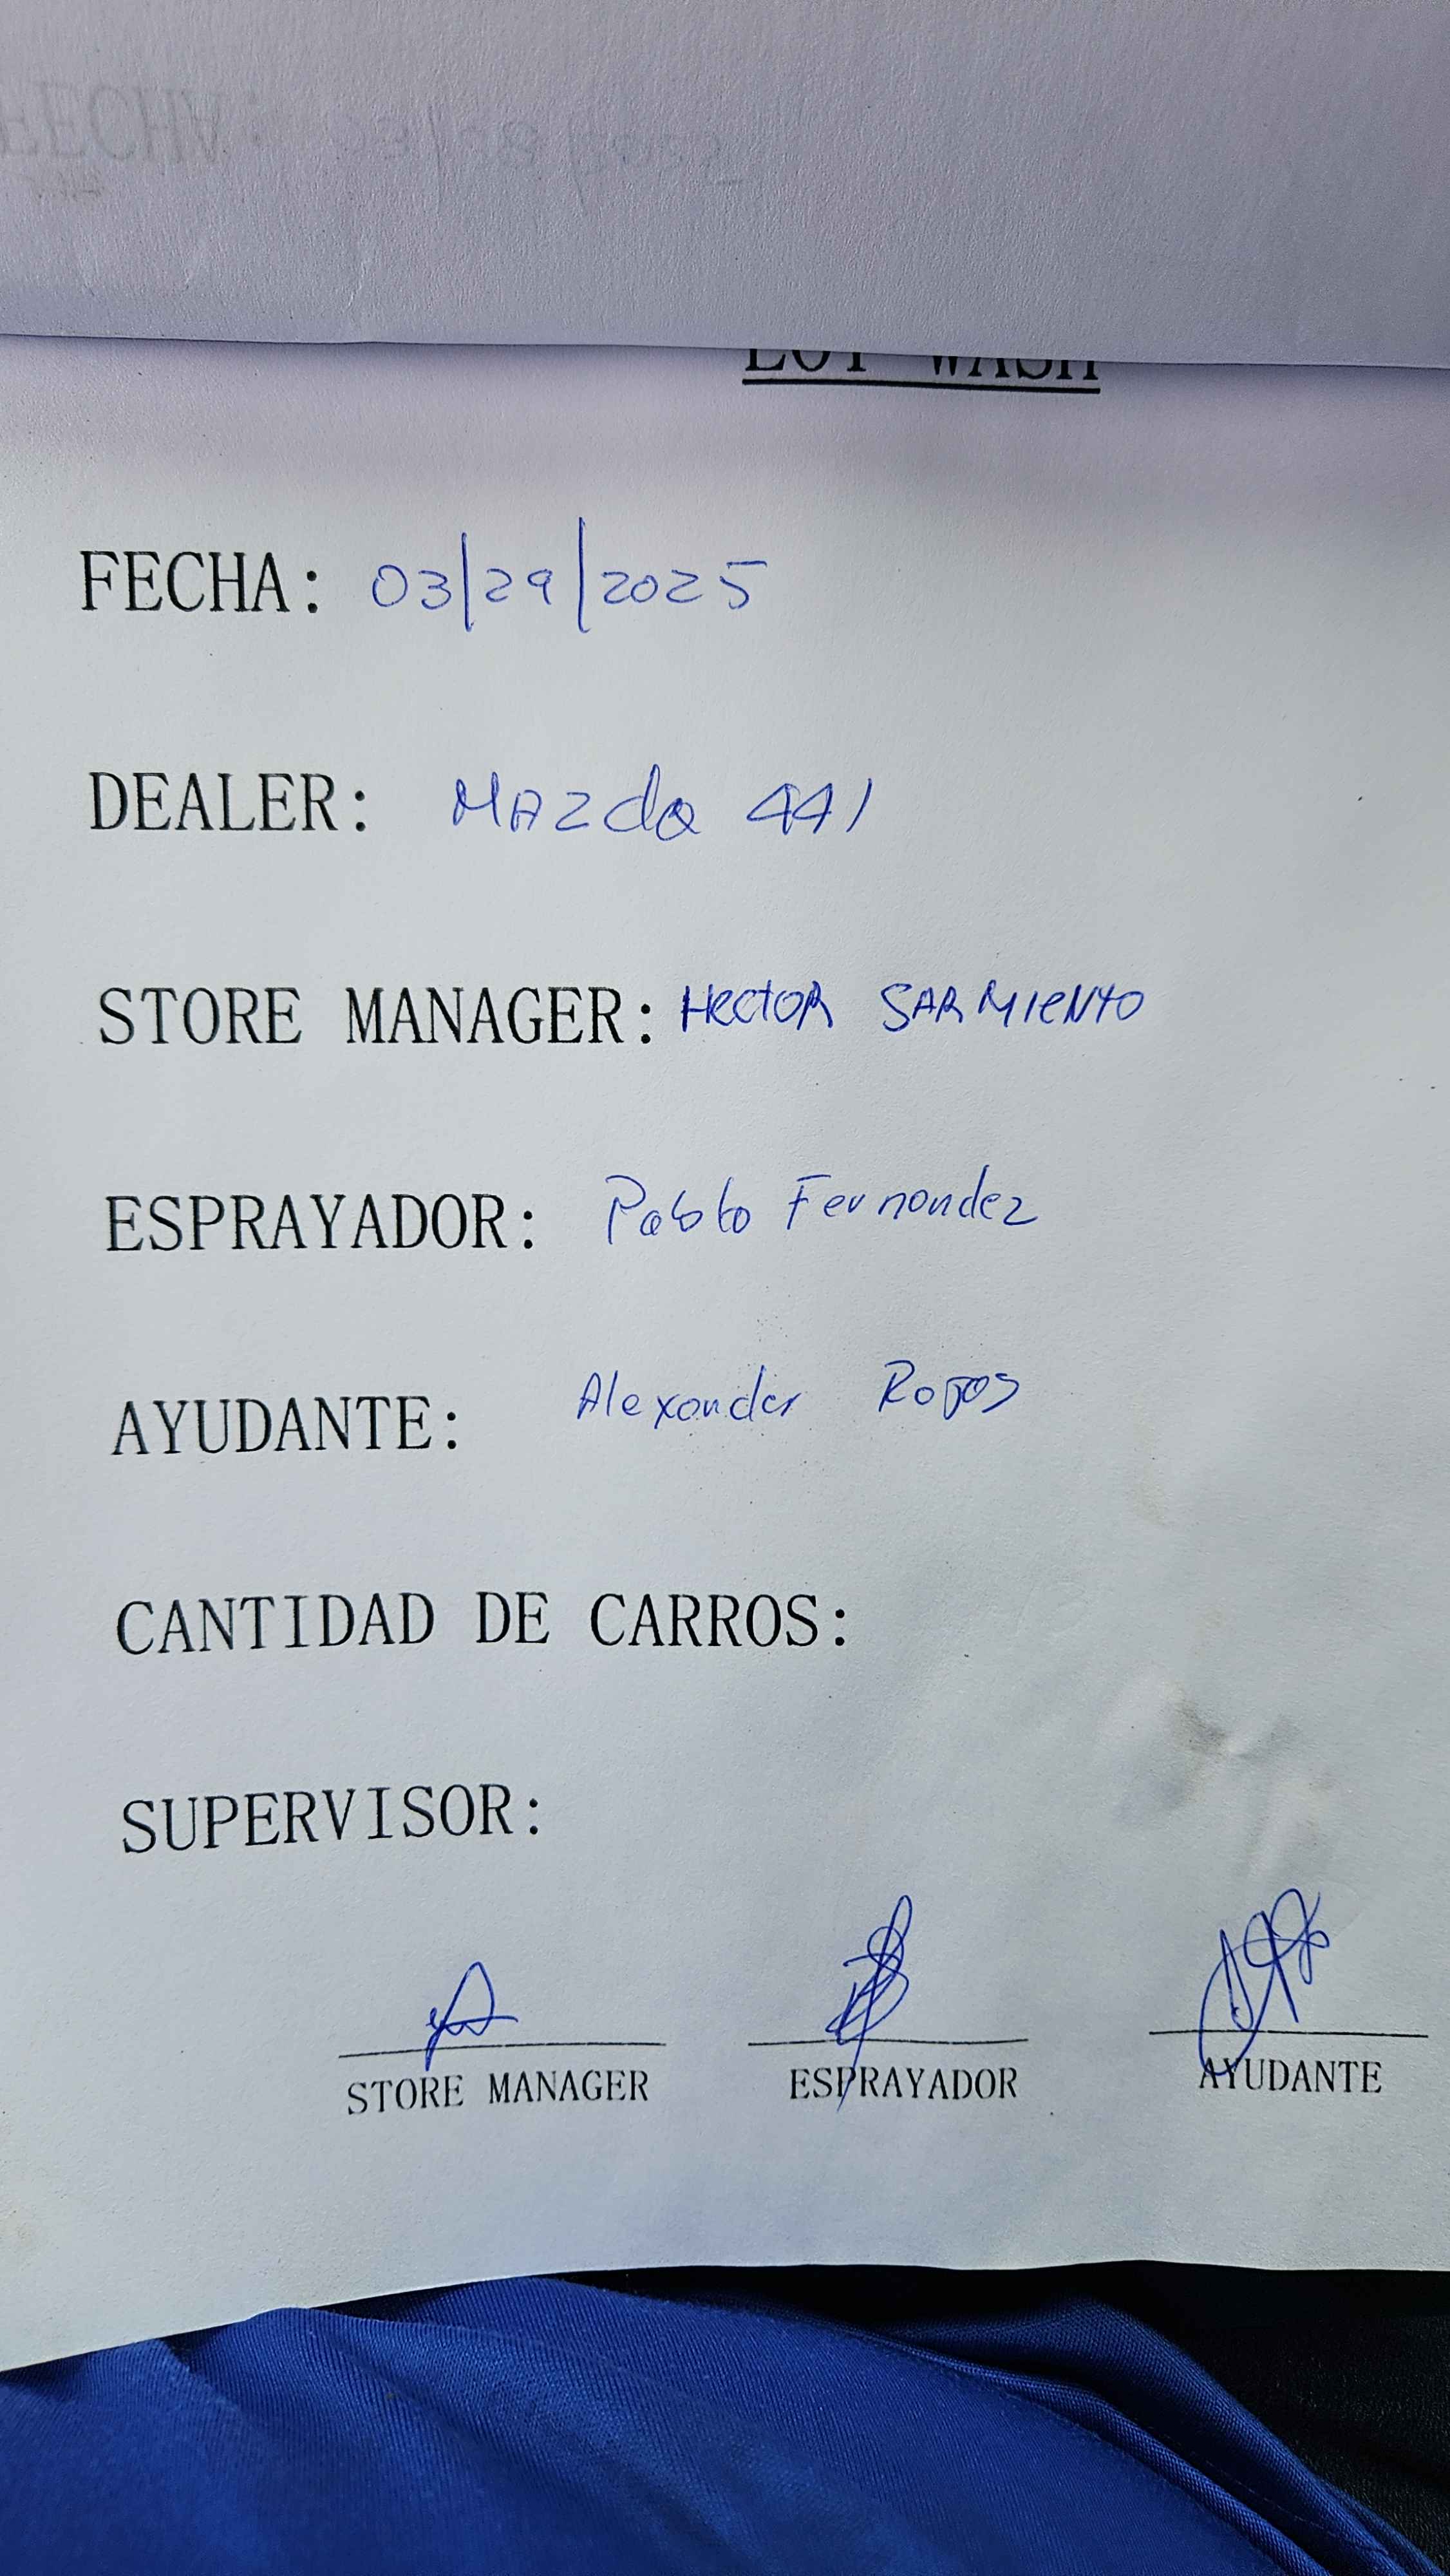 FECHA:
LOT WASH
FECHA: 03/29/2025
DEALER: Mazda 441
STORE MANAGER: Hector SARMIENTO
ESPRAYADOR: Pablo Fernandez
AYUDANTE: Alexander Rojas
CANTIDAD DE CARROS:
SUPERVISOR:
STORE MANAGER ESPRAYADOR AYUDANTE